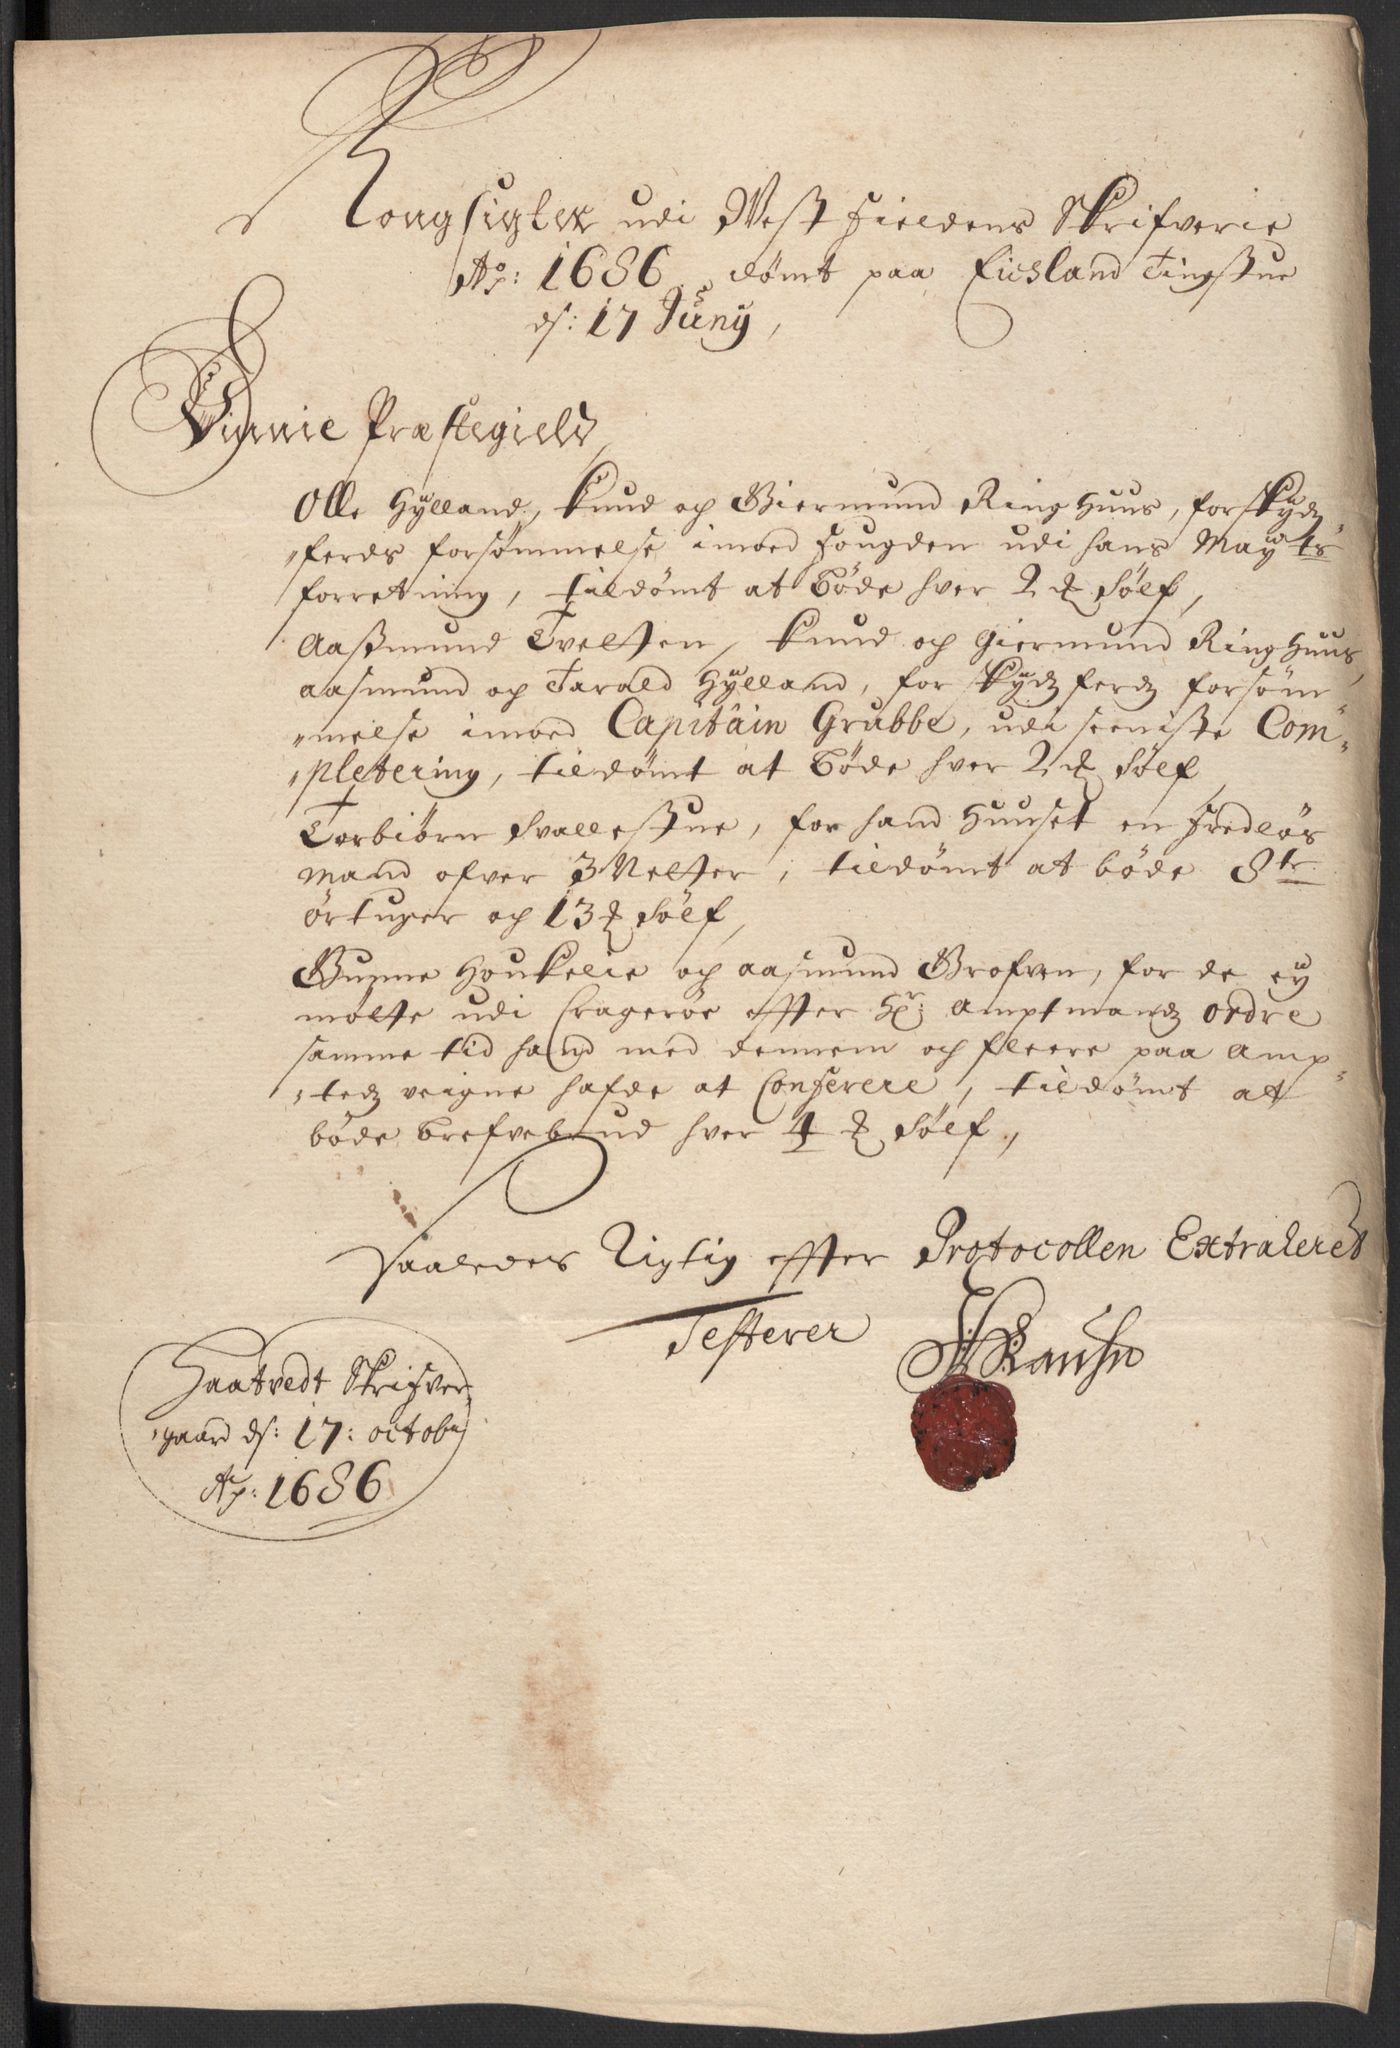 Kongsigter udi West Fieldens Skrifverie
Aō: 1686. dömt paa Eidsland Tingstue
ds: 17 Juny,
Vinnie Præstegield,
Olle Hylland, Knud og Giermund Ring Huus, for skydz
ferds forsömmelse imoed fougden udi hans May:ts
forretning, tildömt at böde hver 2 ℔ Sölf,
Aassmund Tvedten, Knud og Giermund Ring Huus,
Aasmund og Tarald Hylland, for skydz ferdz forsöm
melse imoed Capitain Grubbe, udi seeniste Com-
pletering, tildömt at böde hver 2 ℔ Sölf,
Torbiörn Svallestue, for hand Huuset en fredlös
mand ofver 3 Netter, tildömt at böde 8te
örtuger og 13 ℔ Sölf,
Gunne Houkelie og Aasmund Grofven, for de ey
mötte udi Crageröe effter Hr: Amptmandz ordre
samme tid hand med dennem och fleere paa Amp-
tedz veigne hafde at Conferere, tildömt at
böde brefvebrud hver 4 ℔ Sölf,
Saaledes Rigtig effter Protocollen Extraheret
Testerer
Haatvedt Skrifver
gaard ds: 17: octobr
Aō: 1686